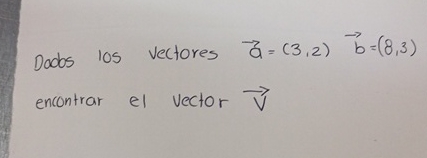 Dados los vectores a⃗ = (3,2) b⃗ =(8,3)
encontrar el vector V⃗